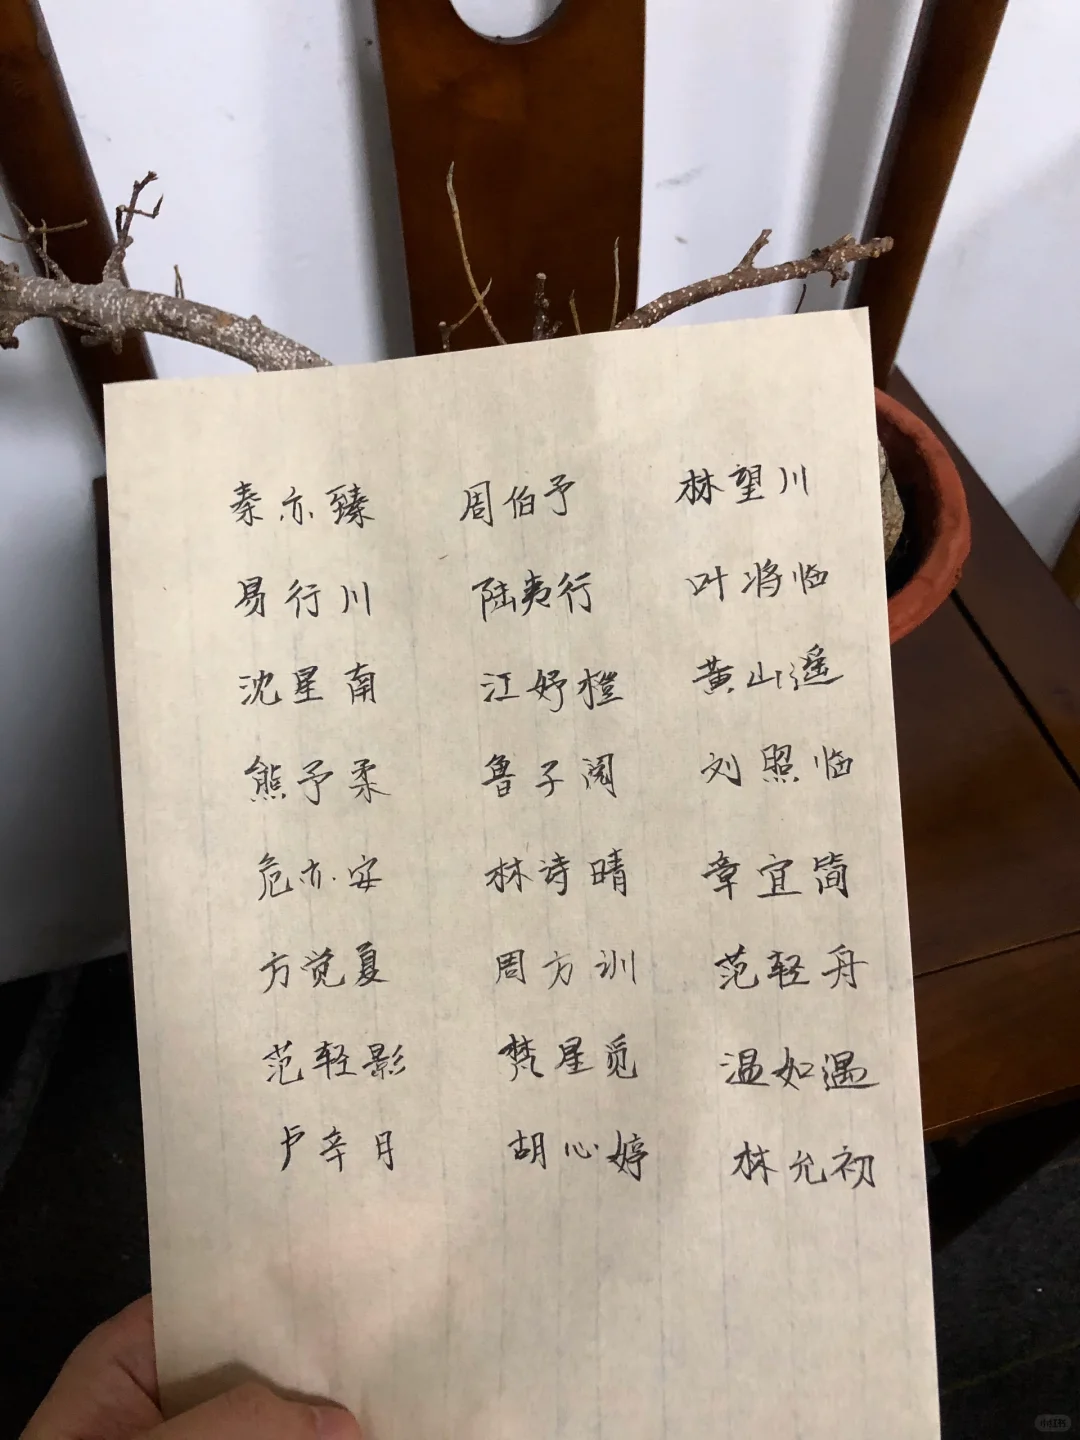 秦亦臻 周伯予 林望川
易行川 陆夷行 叶将临
沈星南 江妤橙 黄山遥
熊予柔 鲁子阅 刘照临
危亦安 林诗晴 章宜简
方觉夏 周方训 范轻舟
范轻影 樊星觅 温如遇
卢辛月 胡心婷 林允初
小红书